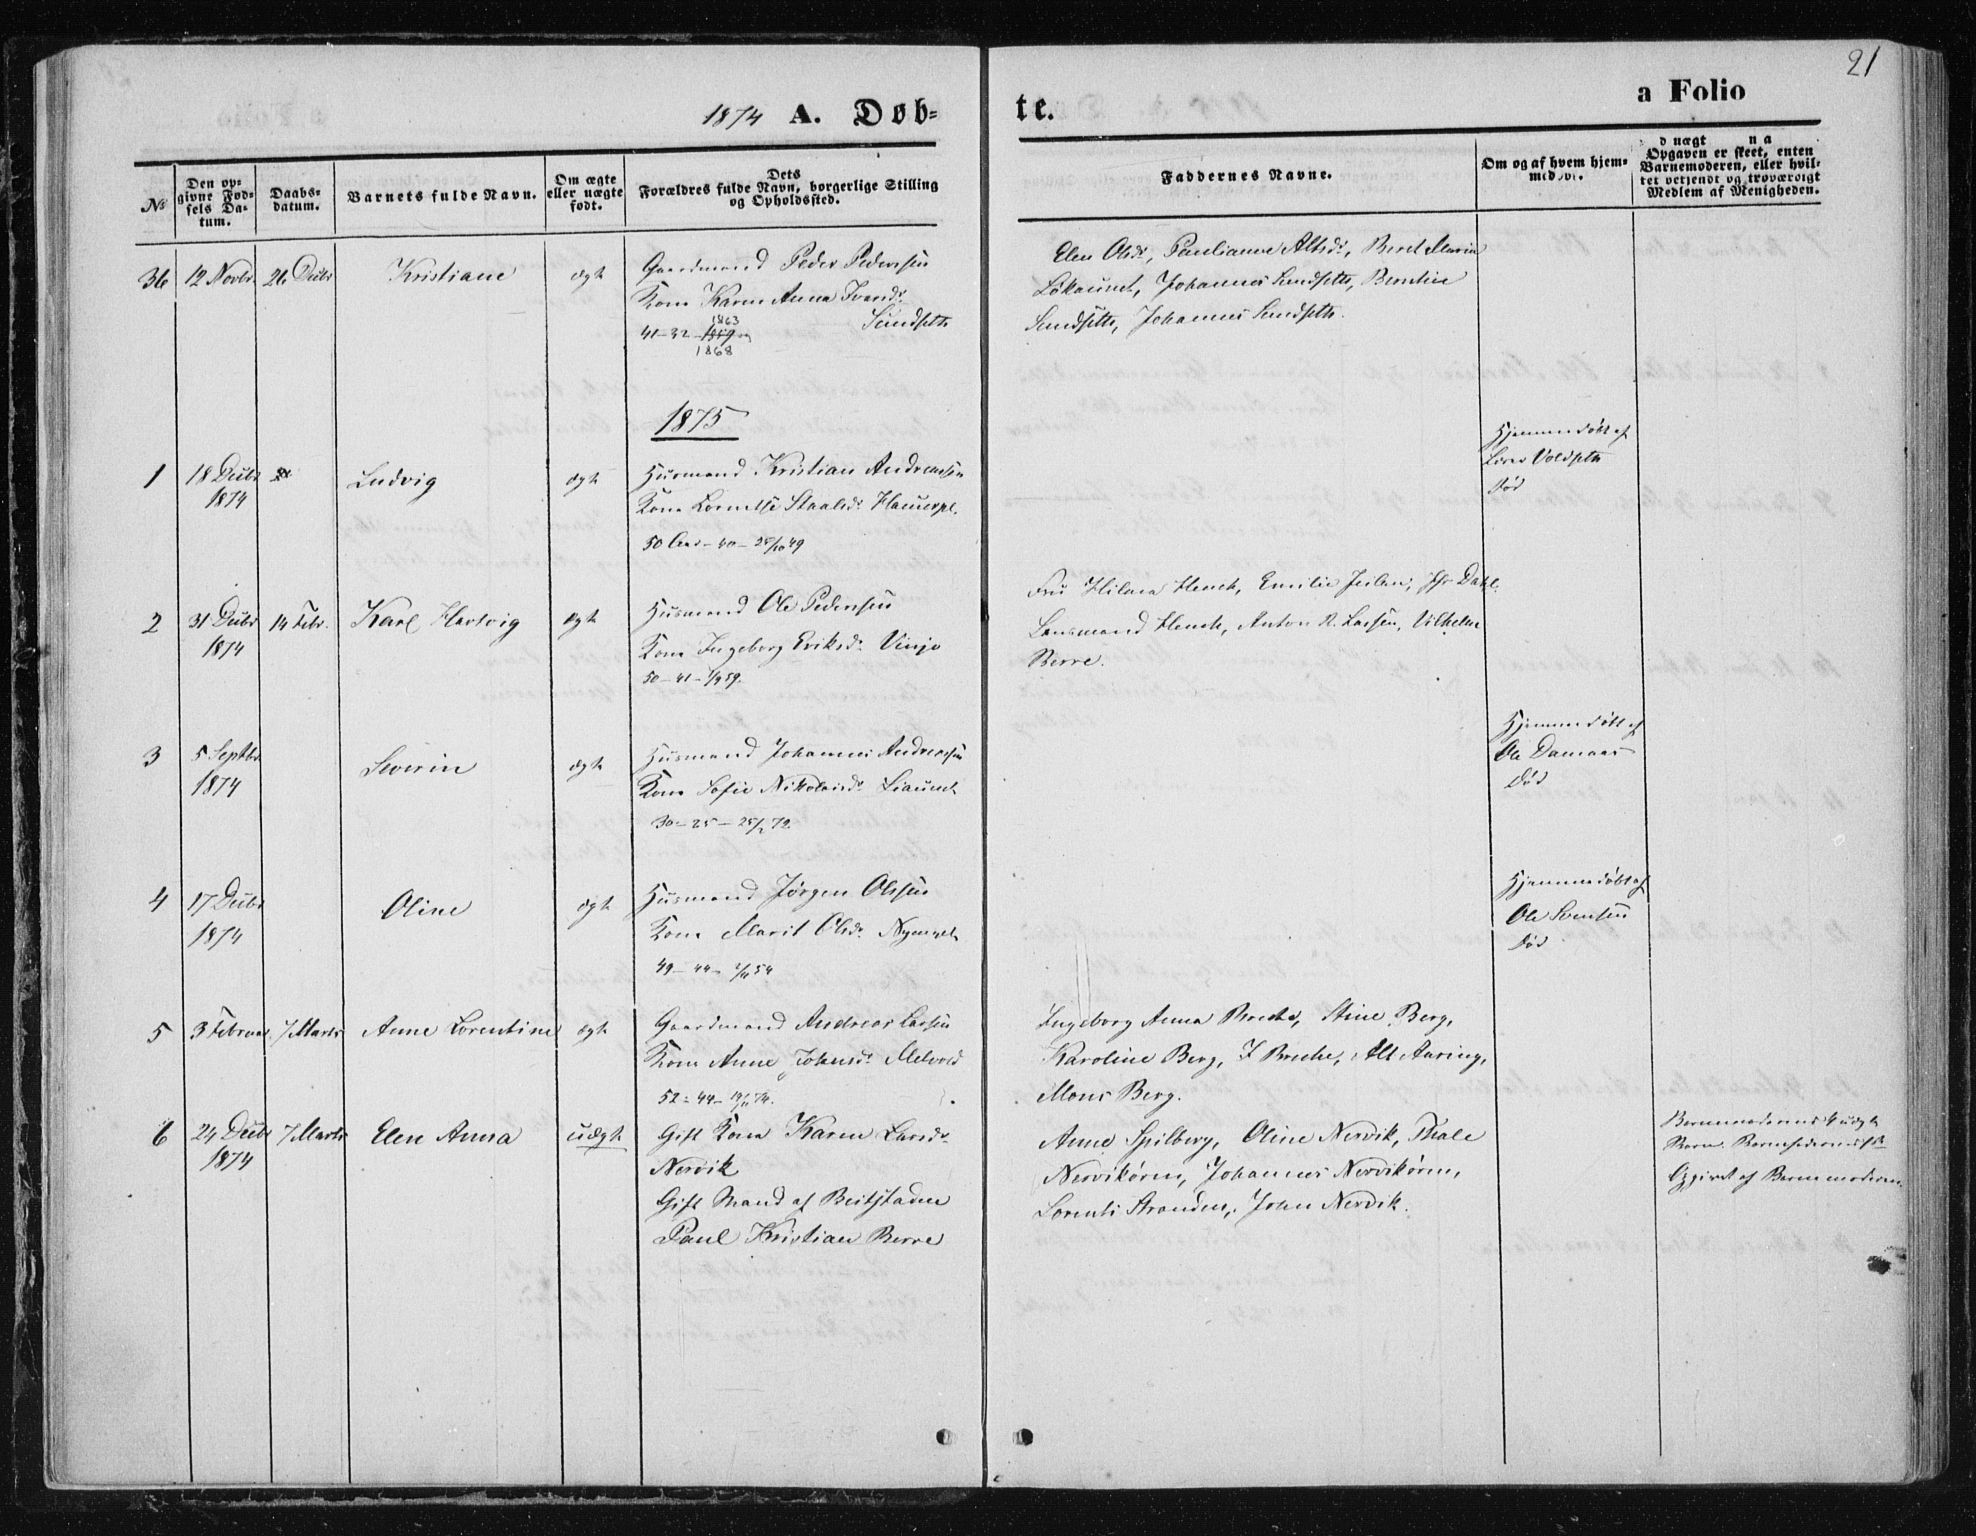 21
1874 A. Døb-
te.
a Folio
No
Den op-
givne Fød-
sels Da-
tum.
Daabs-
datum.
Barnets fulde Navn.
Om ægte
eller uægte
født.
Dets
Forældres fulde Navn, borgerlige Stilling
og Opholdssted.
Faddernes Navne.
Om og af hvem hjem-
Opgaven er skeet, enten
Barnemoderen, eller hvil-
Medlem af Menigheden.
36 12 Novbr. 26 Decbr Kristiane ægt
Gaardmand Peder Pedersen
Kone Karen Anna Ivarsd.
Sundseth
41-32
1863
1868
Elen Olsd., Paulianna Altsd., Beret Maria
Løkaunet, Johannes Sundseth, Berntine
Sundseth, Johannes Sundseth.
1875
1 18 Decbr
1874
Ludvig ægt
Husmand Kristian Andreassen
Kone Lornetse Staalsd.
50 - 40 - 25/10 49
Hjemmedøbt af
Voldseth
død
2 31 Decbr 14 Febr.
1874
Karl Hartvig ægt
Husmand Ole Pedersen
Kone Ingeborg Eriksd. Vinje
50-41- 59.
Fru Hilara Henck, Emilie Dahl
Lensmand Henck, Anton R. Larsen, Vilhelm
Berre.
3 5 Septbr.
1874
Severin ægt
Husmand Johannes Andreassen
Kone Sofie Nikolaisd. Liaunet
30-25-25/2 72
Hjemmedøbt af
Ole Damaas
død
4 17 Decbr
1874
Oline ægt
Husmand Jørgen Olssen
Kone Marit Olsd.
49-44- 54
Hjemmedøbt af
Ole Svensen
død
5 3 Februar. 7 Marts Anne Lorentine ægt
Gaardmand Andreas Larsen
Kone Anne Johnsd. Melvold
52-44- 74.
Ingeborg Anna Stine Berg,
Karoline Berg, Alt Aaring,
Mons Berg.
6 24 Decbr 7 Marts Elen Anna uægt
1874
Gift Kone Karen Larsd.
Nervik
Gift Mand af Beitstaden
Paul Kristian Berre
Anne Spilberg, Oline Nervik, Thale
Nervikøren, Johannes Nervikøren,
Lorents Stranden, John Nervik.
Barnemoderens 4 uægt
Barn. Barnefaderens 1st
Opgivet af Barnemoderen